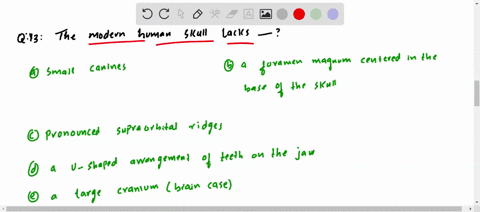 Q:93: The modern human skull lacks — ?
(a) small canines
(b) a foramen magnum centered in the
base of the skull
(c) pronounced supraorbital ridges
(d) a U-shaped arrangement of teeth on the jaw
(e) a large cranium (brain case)